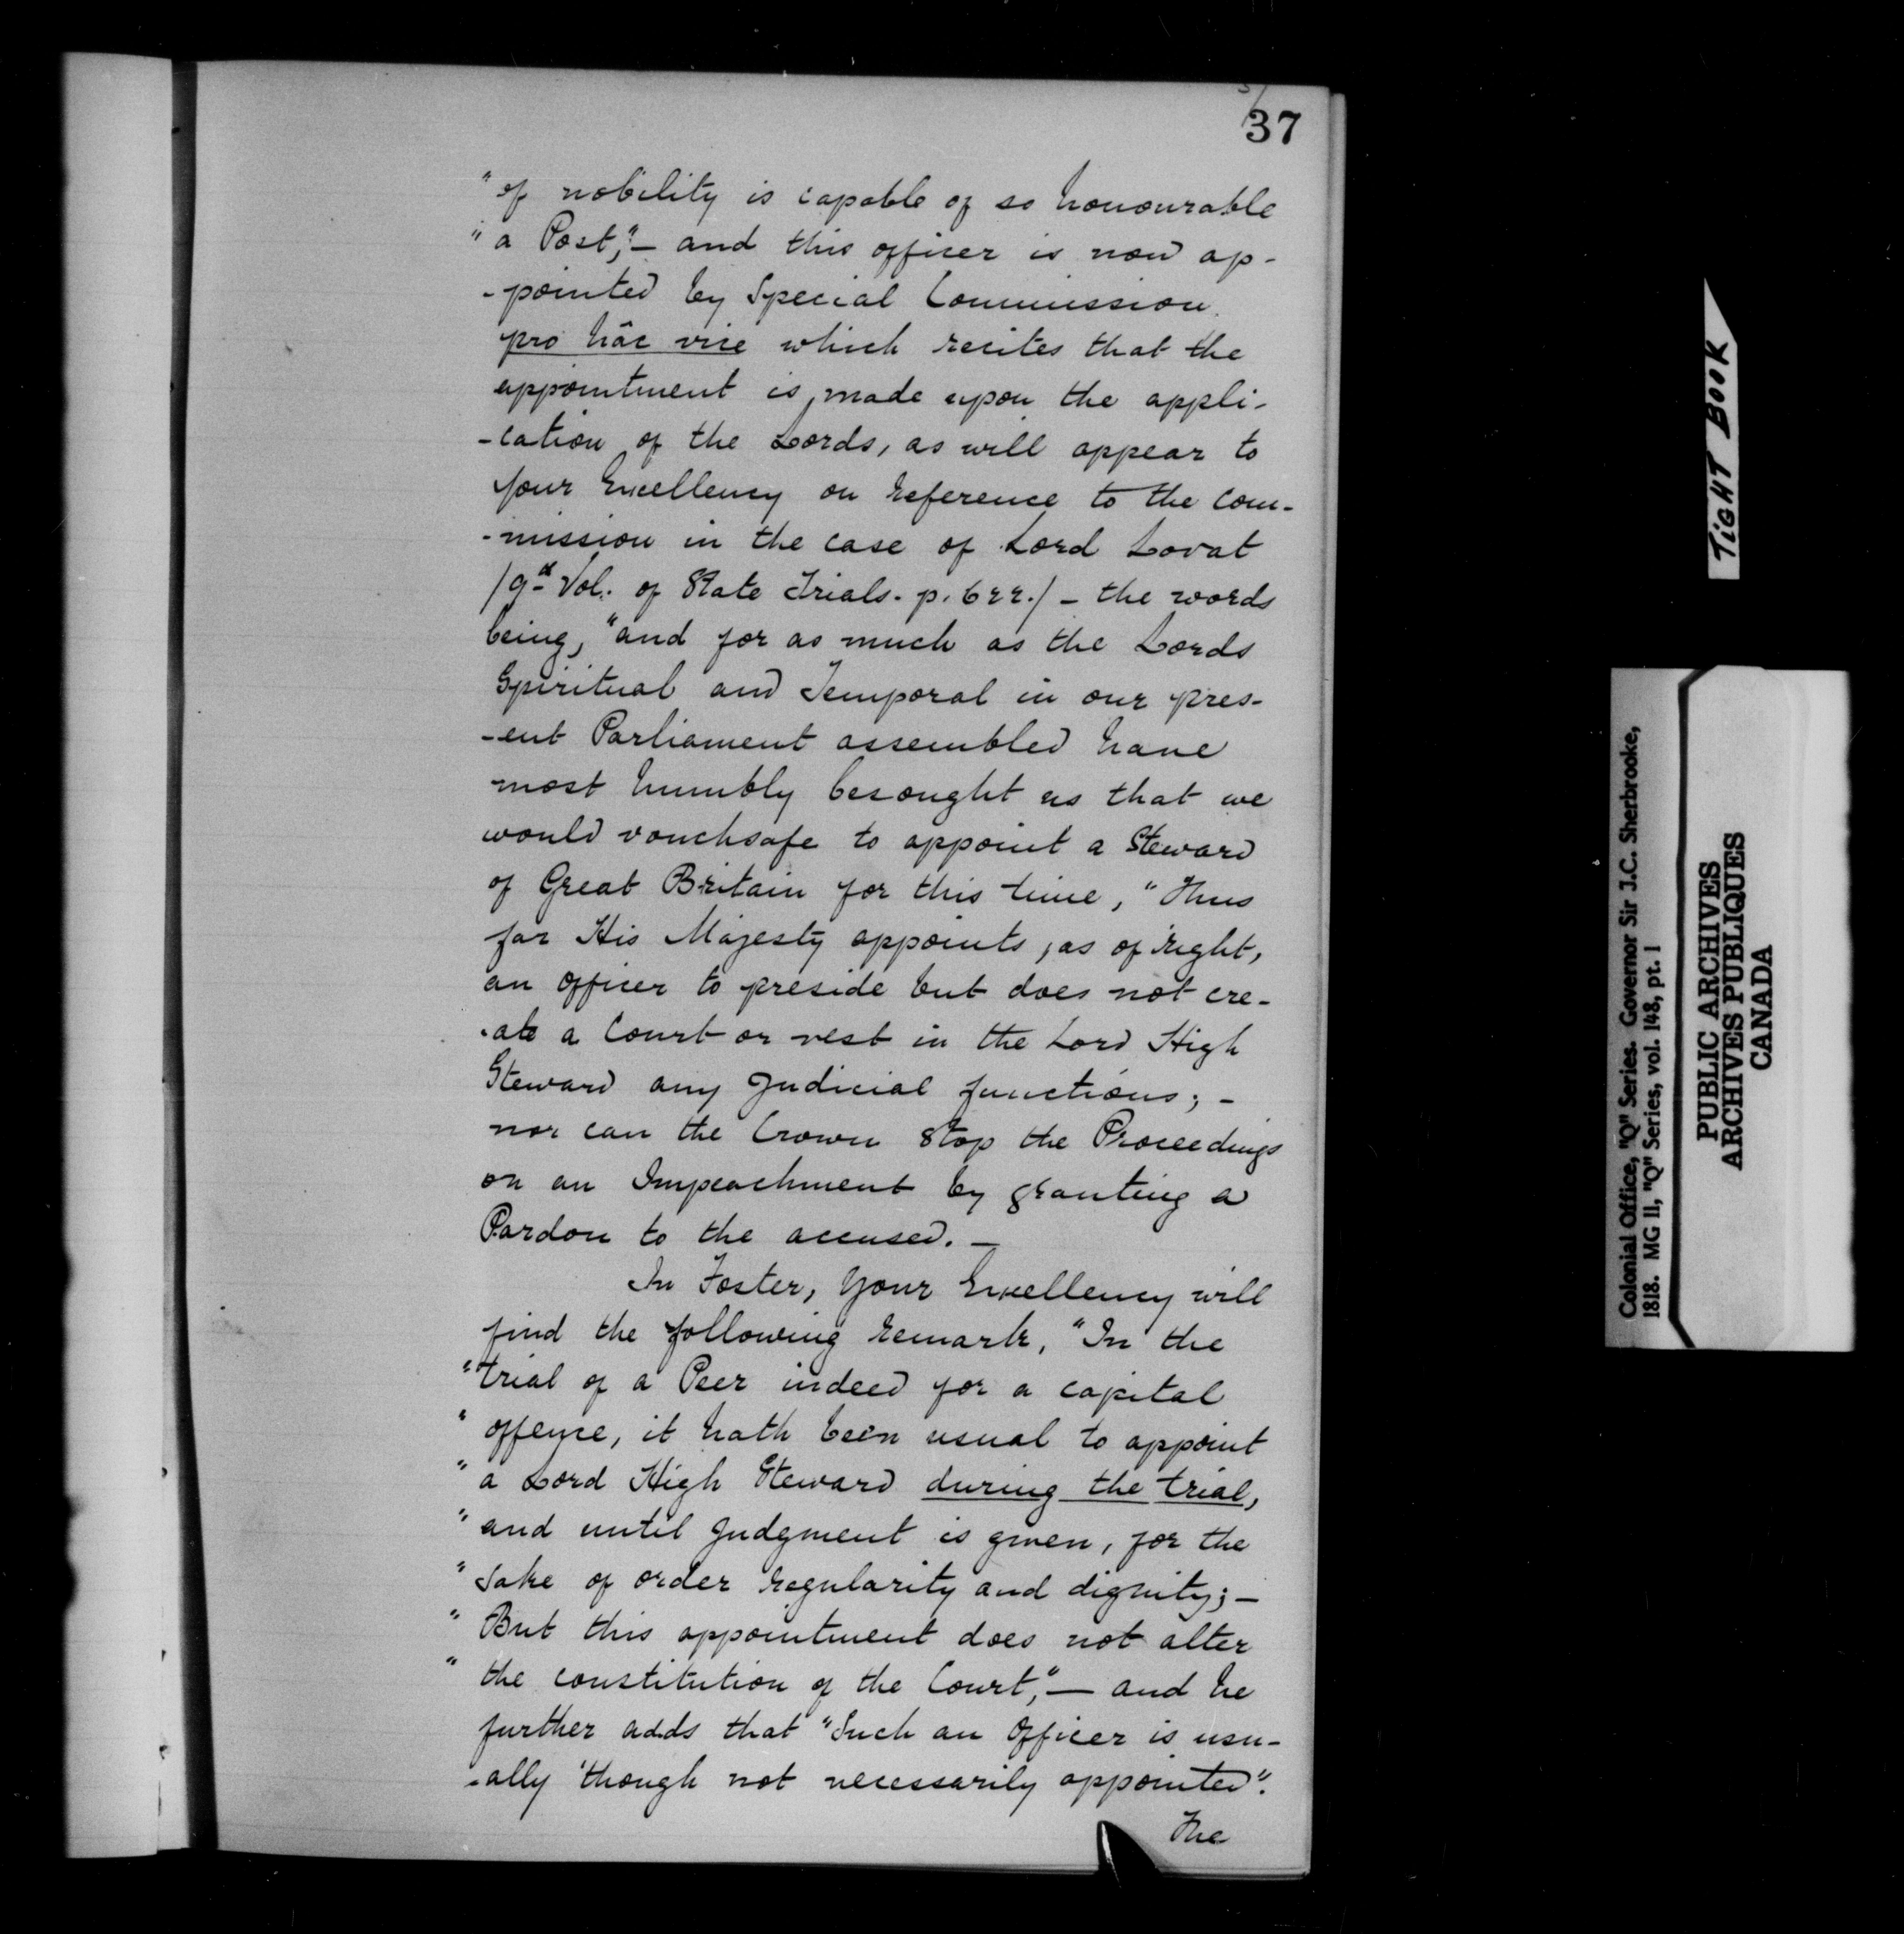 37
"of nobility is capable of so honourable
"a Post,"— and this officer is now ap-
-pointed by Special Commission
pro hâc vice which recites that the
appointment is made upon the appli-
-cation of the Lords, as will appear to
Your Excellency on reference to the Com-
-mission in the case of Lord Lovat
/9d Vol. of State Trials. p. 622./ — the words
being, "and for as much as the Lords
Spiritual and Temporal in our pres-
-ent Parliament assembled have
most humbly besought us that we
would vouchsafe to appoint a Steward
of Great Britain for this time," Thus
far His Majesty appoints, as of right,
an Officer to preside but does not cre-
-ate a Court or vest in the Lord High
Steward any Judicial functions; —
nor can the Crown stop the Proceedings
on an Impeachment by granting a
Pardon to the accused. —
In Foster, Your Excellency will
find the following remark, "In the
"trial of a Peer indeed for a capital
"offence, it hath been usual to appoint
"a Lord High Steward during the trial,
"and until Judgment is given, for the
"sake of order regularity and dignity; —
"But this appointment does not alter
"the constitution of the Court," — and he
further adds that "Such an Officer is usu-
-ally though not necessarily appointed".
The
TIGHT BOOK
Colonial Office, "Q" Series. Governor Sir J.C. Sherbrooke,
1818. MG 11, "Q" Series, vol. 148, pt. 1
PUBLIC ARCHIVES
ARCHIVES PUBLIQUES
CANADA